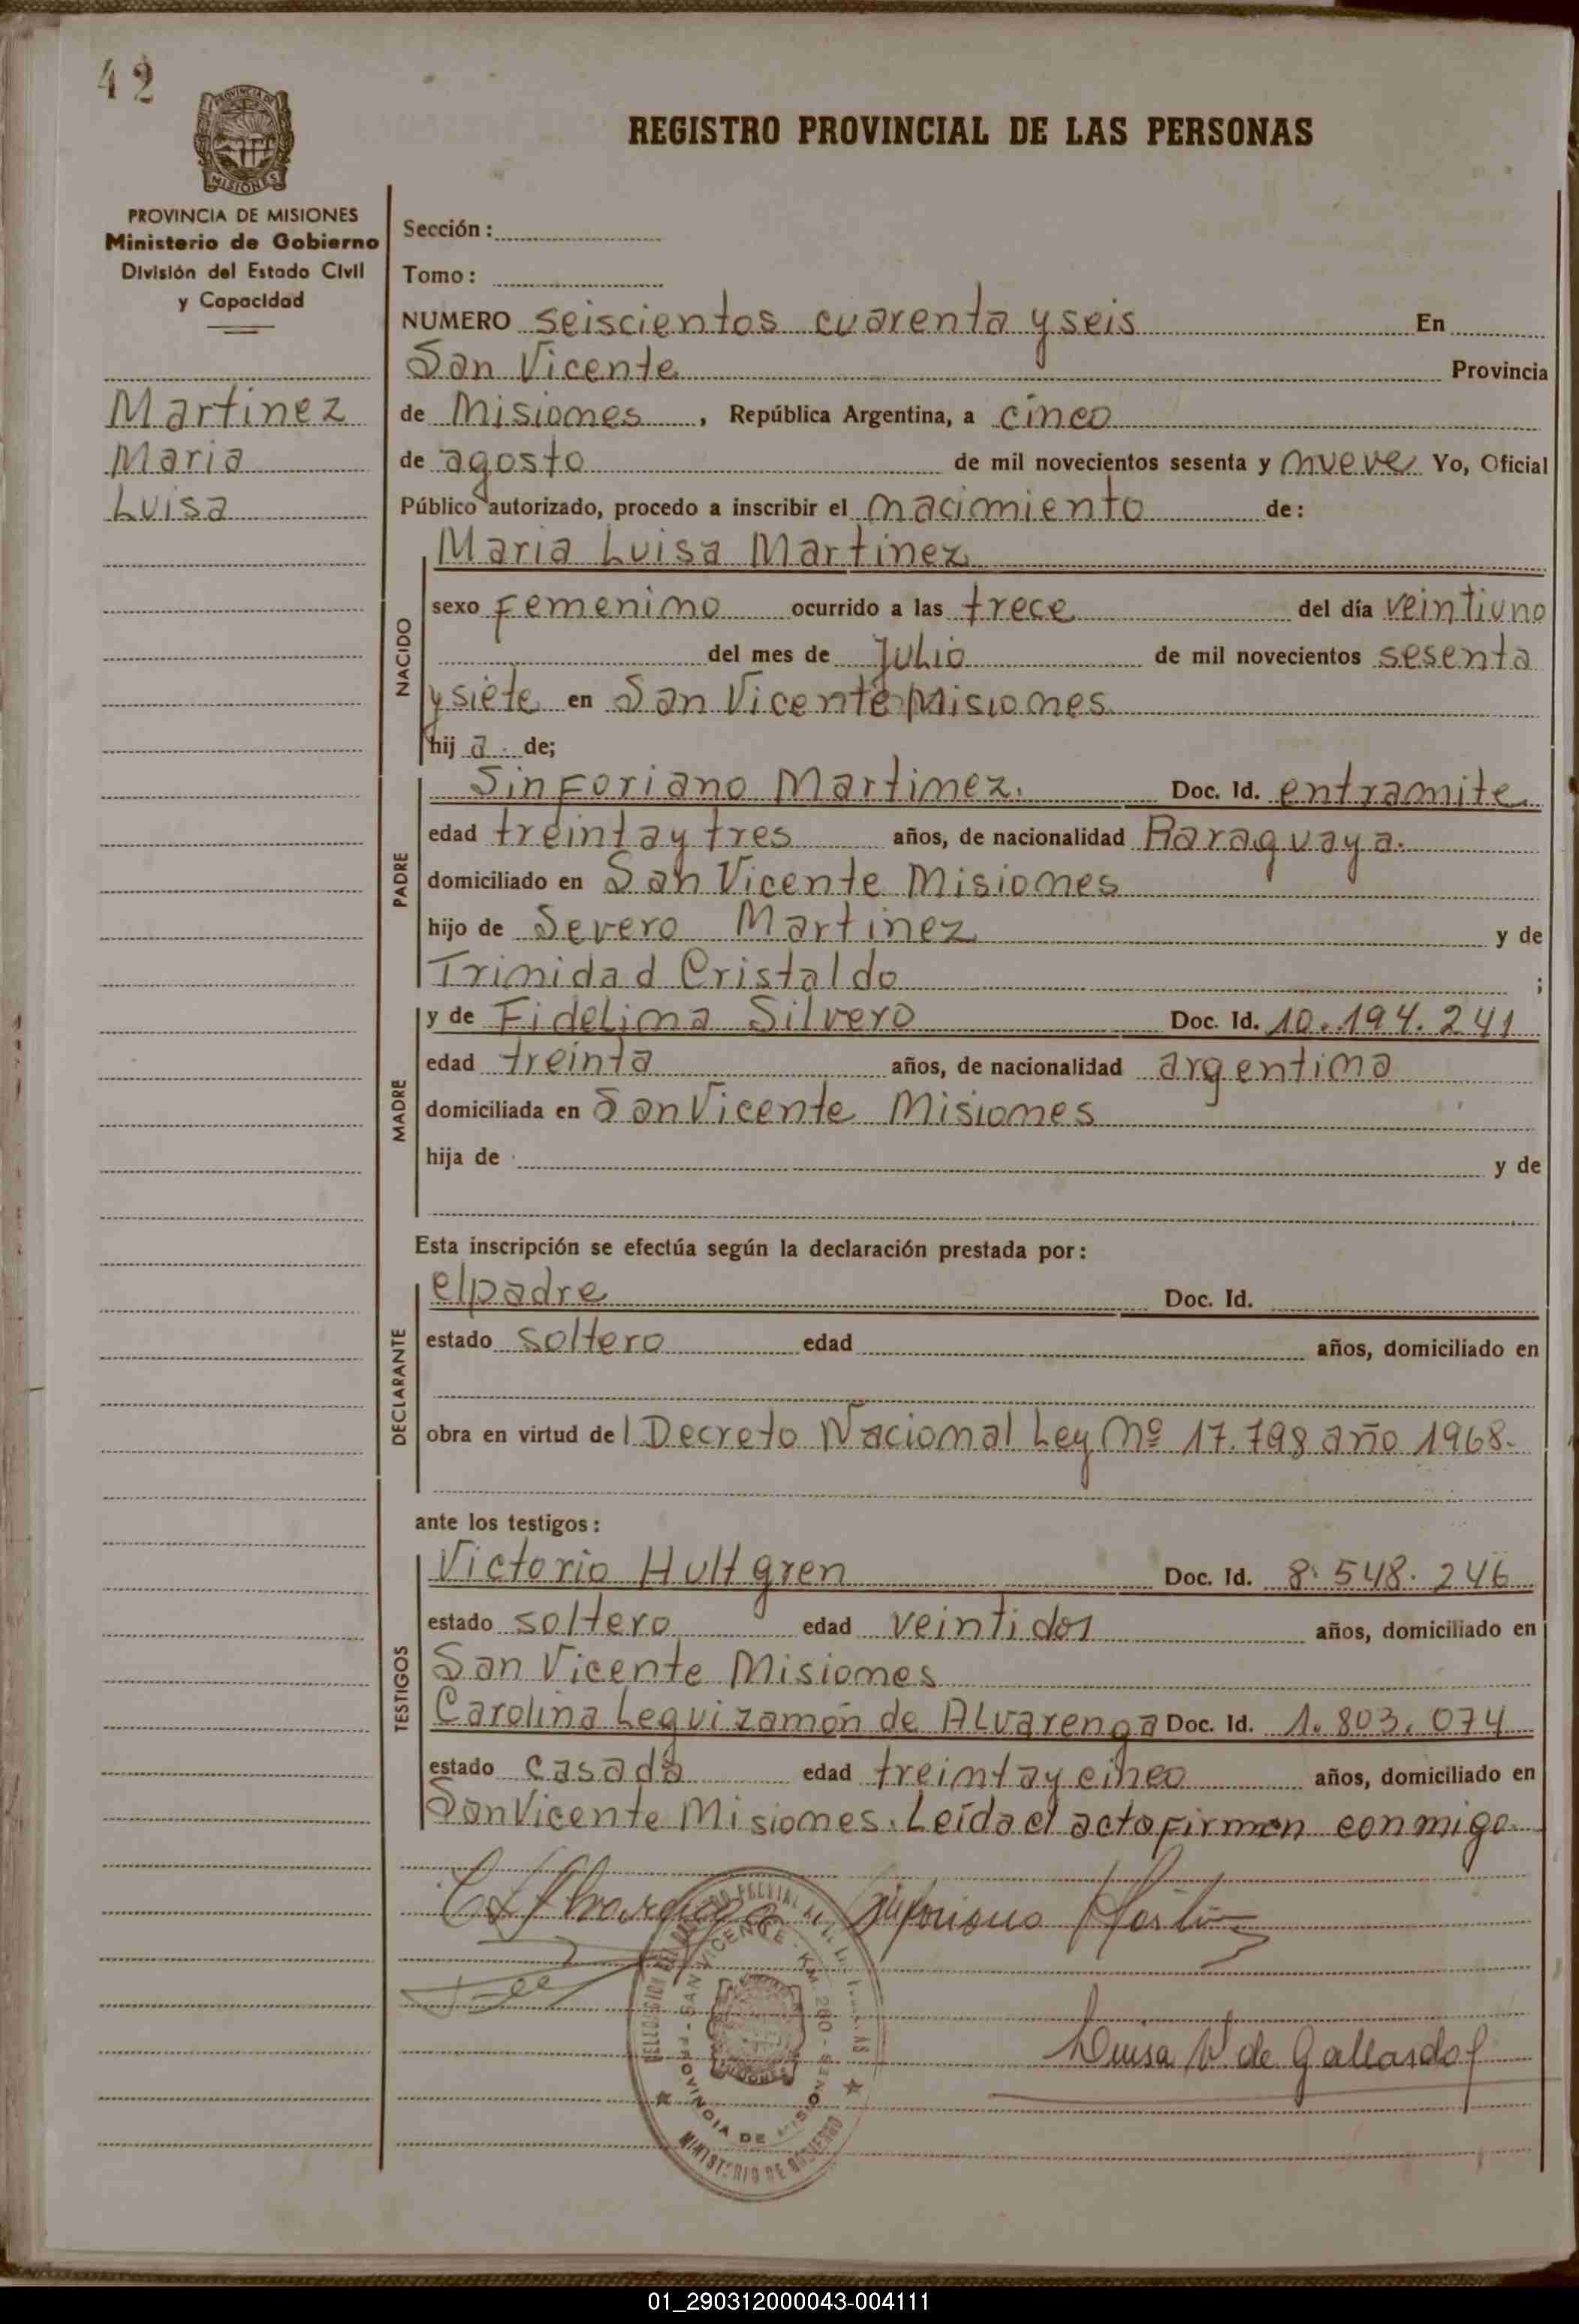 42
PROVINCIA DE
MISIONES
REGISTRO PROVINCIAL DE LAS PERSONAS
PROVINCIA DE MISIONES
Ministerio de Gobierno
División del Estado Civil
y Capacidad
Martinez
Maria
Luisa
Sección:
Tomo:
NUMERO seiscientos cuarenta y seis En
San Vicente Provincia
de Misiones, República Argentina, a cinco
de agosto de mil novecientos sesenta y nueve Yo, Oficial
Público autorizado, procedo a inscribir el nacimiento de:
NACIDO
Maria Luisa Martinez
sexo femenino ocurrido a las trece del día veintiuno
del mes de Julio de mil novecientos sesenta
y siete en San Vicente Misiones
hij a de;
PADRE
Sinforiano Martinez. Doc. Id. entramite
edad treinta y tres años, de nacionalidad Paraguaya.
domiciliado en San Vicente Misiones
hijo de Severo Martinez y de
Trinidad Cristaldo ;
MADRE
y de Fidelina Silvero Doc. Id. 10.194.241
edad treinta años, de nacionalidad argentina
domiciliada en San Vicente Misiones
hija de y de
Esta inscripción se efectúa según la declaración prestada por:
DECLARANTE
el padre Doc. Id.
estado soltero edad años, domiciliado en
obra en virtud del Decreto Nacional Ley Nº 17.798 año 1968.
ante los testigos:
TESTIGOS
Victorio Hultgren Doc. Id. 8.548.246
estado soltero edad veintidos años, domiciliado en
San Vicente Misiones
Carolina Leguizamón de Alvarenga Doc. Id. 1.803.074
estado casada edad treinta y cinco años, domiciliado en
San Vicente Misiones. Leída el acta firman conmigo.
Sinforiano Martinez
Luisa V de Gallardo
SAN VICENTE - KM. 200
PROVINCIA DE MISIONES
MINISTERIO DE GOBIERNO
01_290312000043-004111